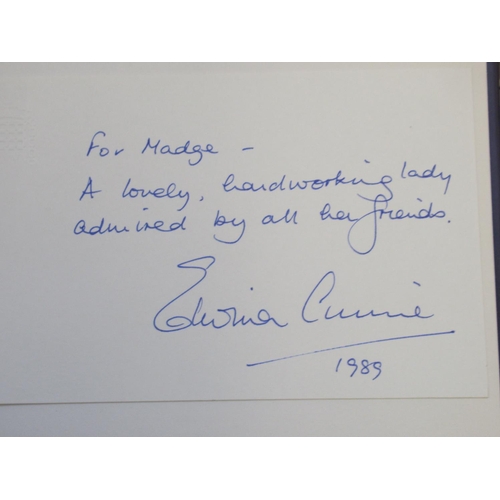 For Madge -
A lovely, hardworking lady
admired by all her friends.
Edwina Currie
1989